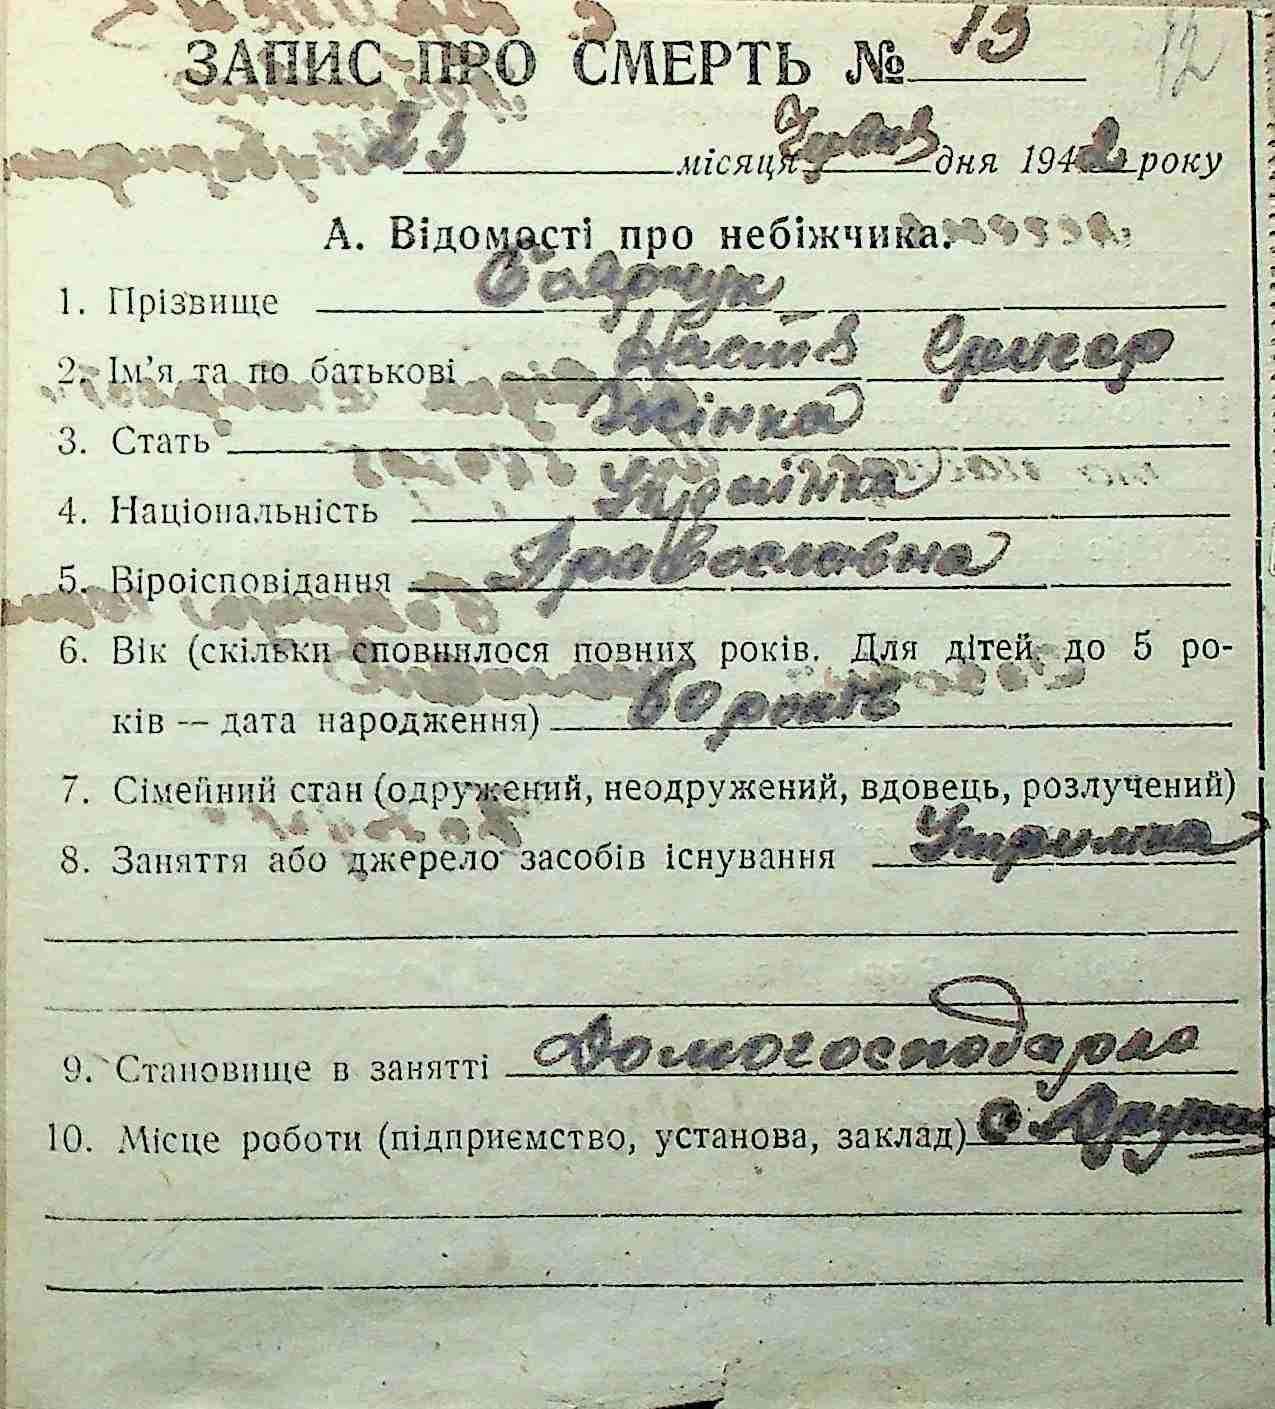 ЗАПИС ПРО СМЕРТЬ № 13 12
23 місяця Червня дня 1942 року
А. Відомості про небіжчика.
1. Прізвище
2. Ім’я та по батькові Настя
3. Стать Жінка
4. Національність Українка
5. Віроісповідання Православна
6. Вік (скільки сповнилося повних років. Для дітей до 5 ро-
ків — дата народження) 60 років
7. Сімейний стан (одружений, неодружений, вдовець, розлучений)
8. Заняття або джерело засобів існування
9. Становище в занятті Домогосподарка
10. Місце роботи (підприємство, установа, заклад) с